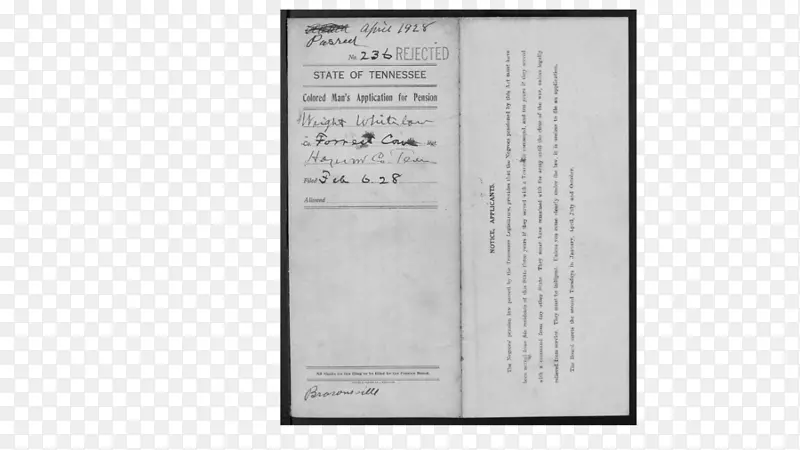 April 1928
Passed
No. 236 REJECTED
STATE OF TENNESSEE
Colored Man's Application for Pension
Wright Whitelow
Forrest Cav
Haywood Co. Tenn
Filed Feb 6. 28
Allowed
Brownsville
NOTICE, APPLICANTS.
The Negroes' pension law passed by the Tennessee Legislature, provides that the Negroes pensioned by this Act must have
been bona fide residents of this State three years if they served with a Tennessee command, and ten years if they served
with a command from any other State. They must have remained with the army until the close of the war, unless legally
relieved from service. They must be indigent. Unless you come clearly under the law, it is useless to file an application.
The Board meets the second Tuesdays in January, April, July and October.